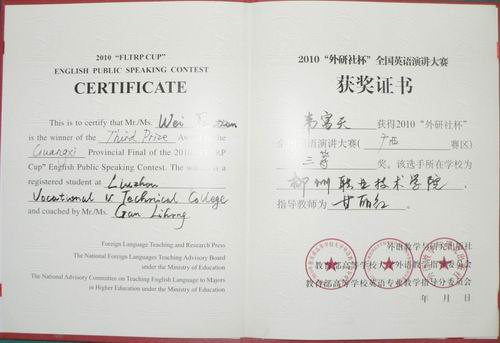 2010 "FLTRP CUP"
ENGLISH PUBLIC SPEAKING CONTEST
CERTIFICATE
This is to certify that Mr./Ms. Wei
is the winner of the Third Prize Award
Guangxi Provincial Final of the 2010 "FLTRP
Cup" English Public Speaking Contest. The winner is a
registered student at Liuzhou
Vocational & Technical College
and coached by Mr./Ms. Gan Lihong
Foreign Language Teaching and Research Press
The National Foreign Languages Teaching Advisory Board
under the Ministry of Education
The National Advisory Committee on Teaching English Language to Majors
in Higher Education under the Ministry of Education
2010 "外研社杯" 全国英语演讲大赛
获奖证书
韦富天 获得2010 "外研社杯"
全国英语演讲大赛( 广西 赛区)
三等 奖。该选手所在学校为
柳州职业技术学院,
指导教师为 甘丽红
外语教学与研究出版社
教育部高等学校大学外语教学指导委员会
教育部高等学校英语专业教学指导分委员会
年 月 日